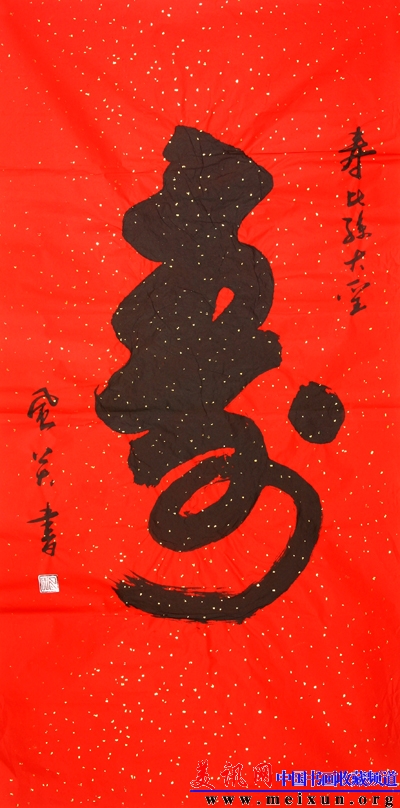 寿比孫大圣
寿
書
美訊网
中国书画收藏频道
www.meixun.org